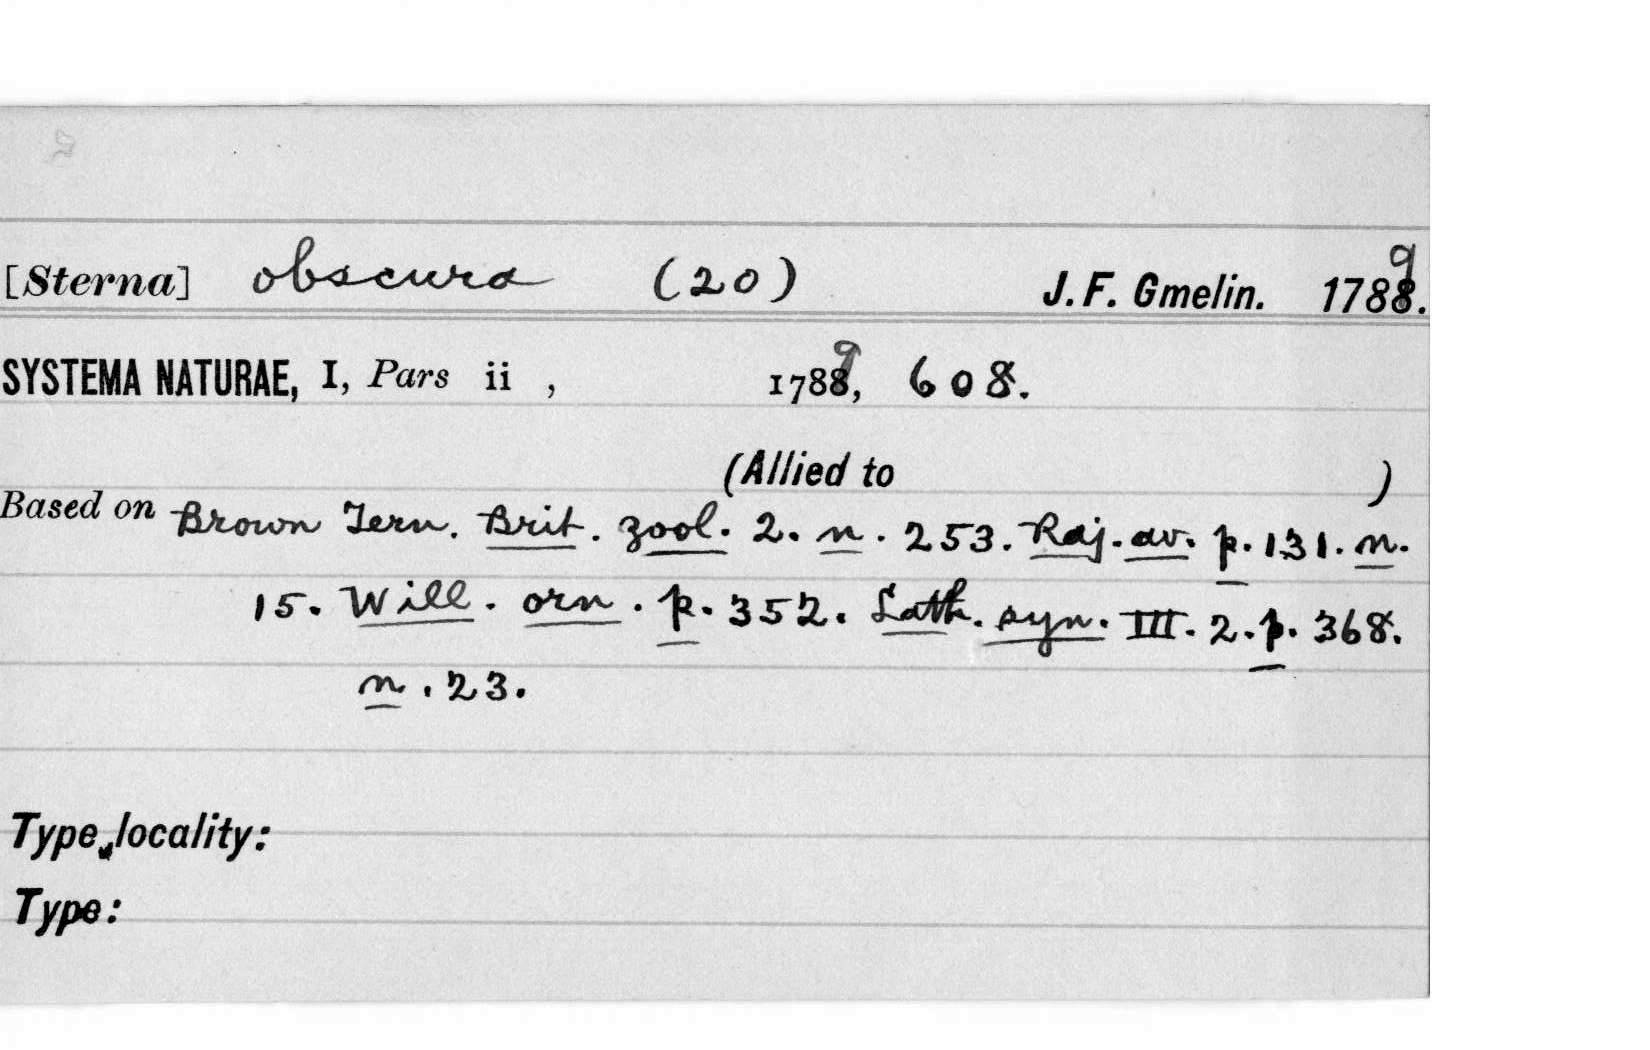 [Sterna] obscura (20) J. F. Gmelin. 1789.
SYSTEMA NATURAE, I, Pars ii , 1789, 608.
(Allied to )
Based on Brown Tern. Brit. zool. 2. n. 253. Raj. av. p. 131. n.
15. Will. orn. p. 352. Lath. syn. III. 2. p. 368.
n. 23.
Type locality:
Type: